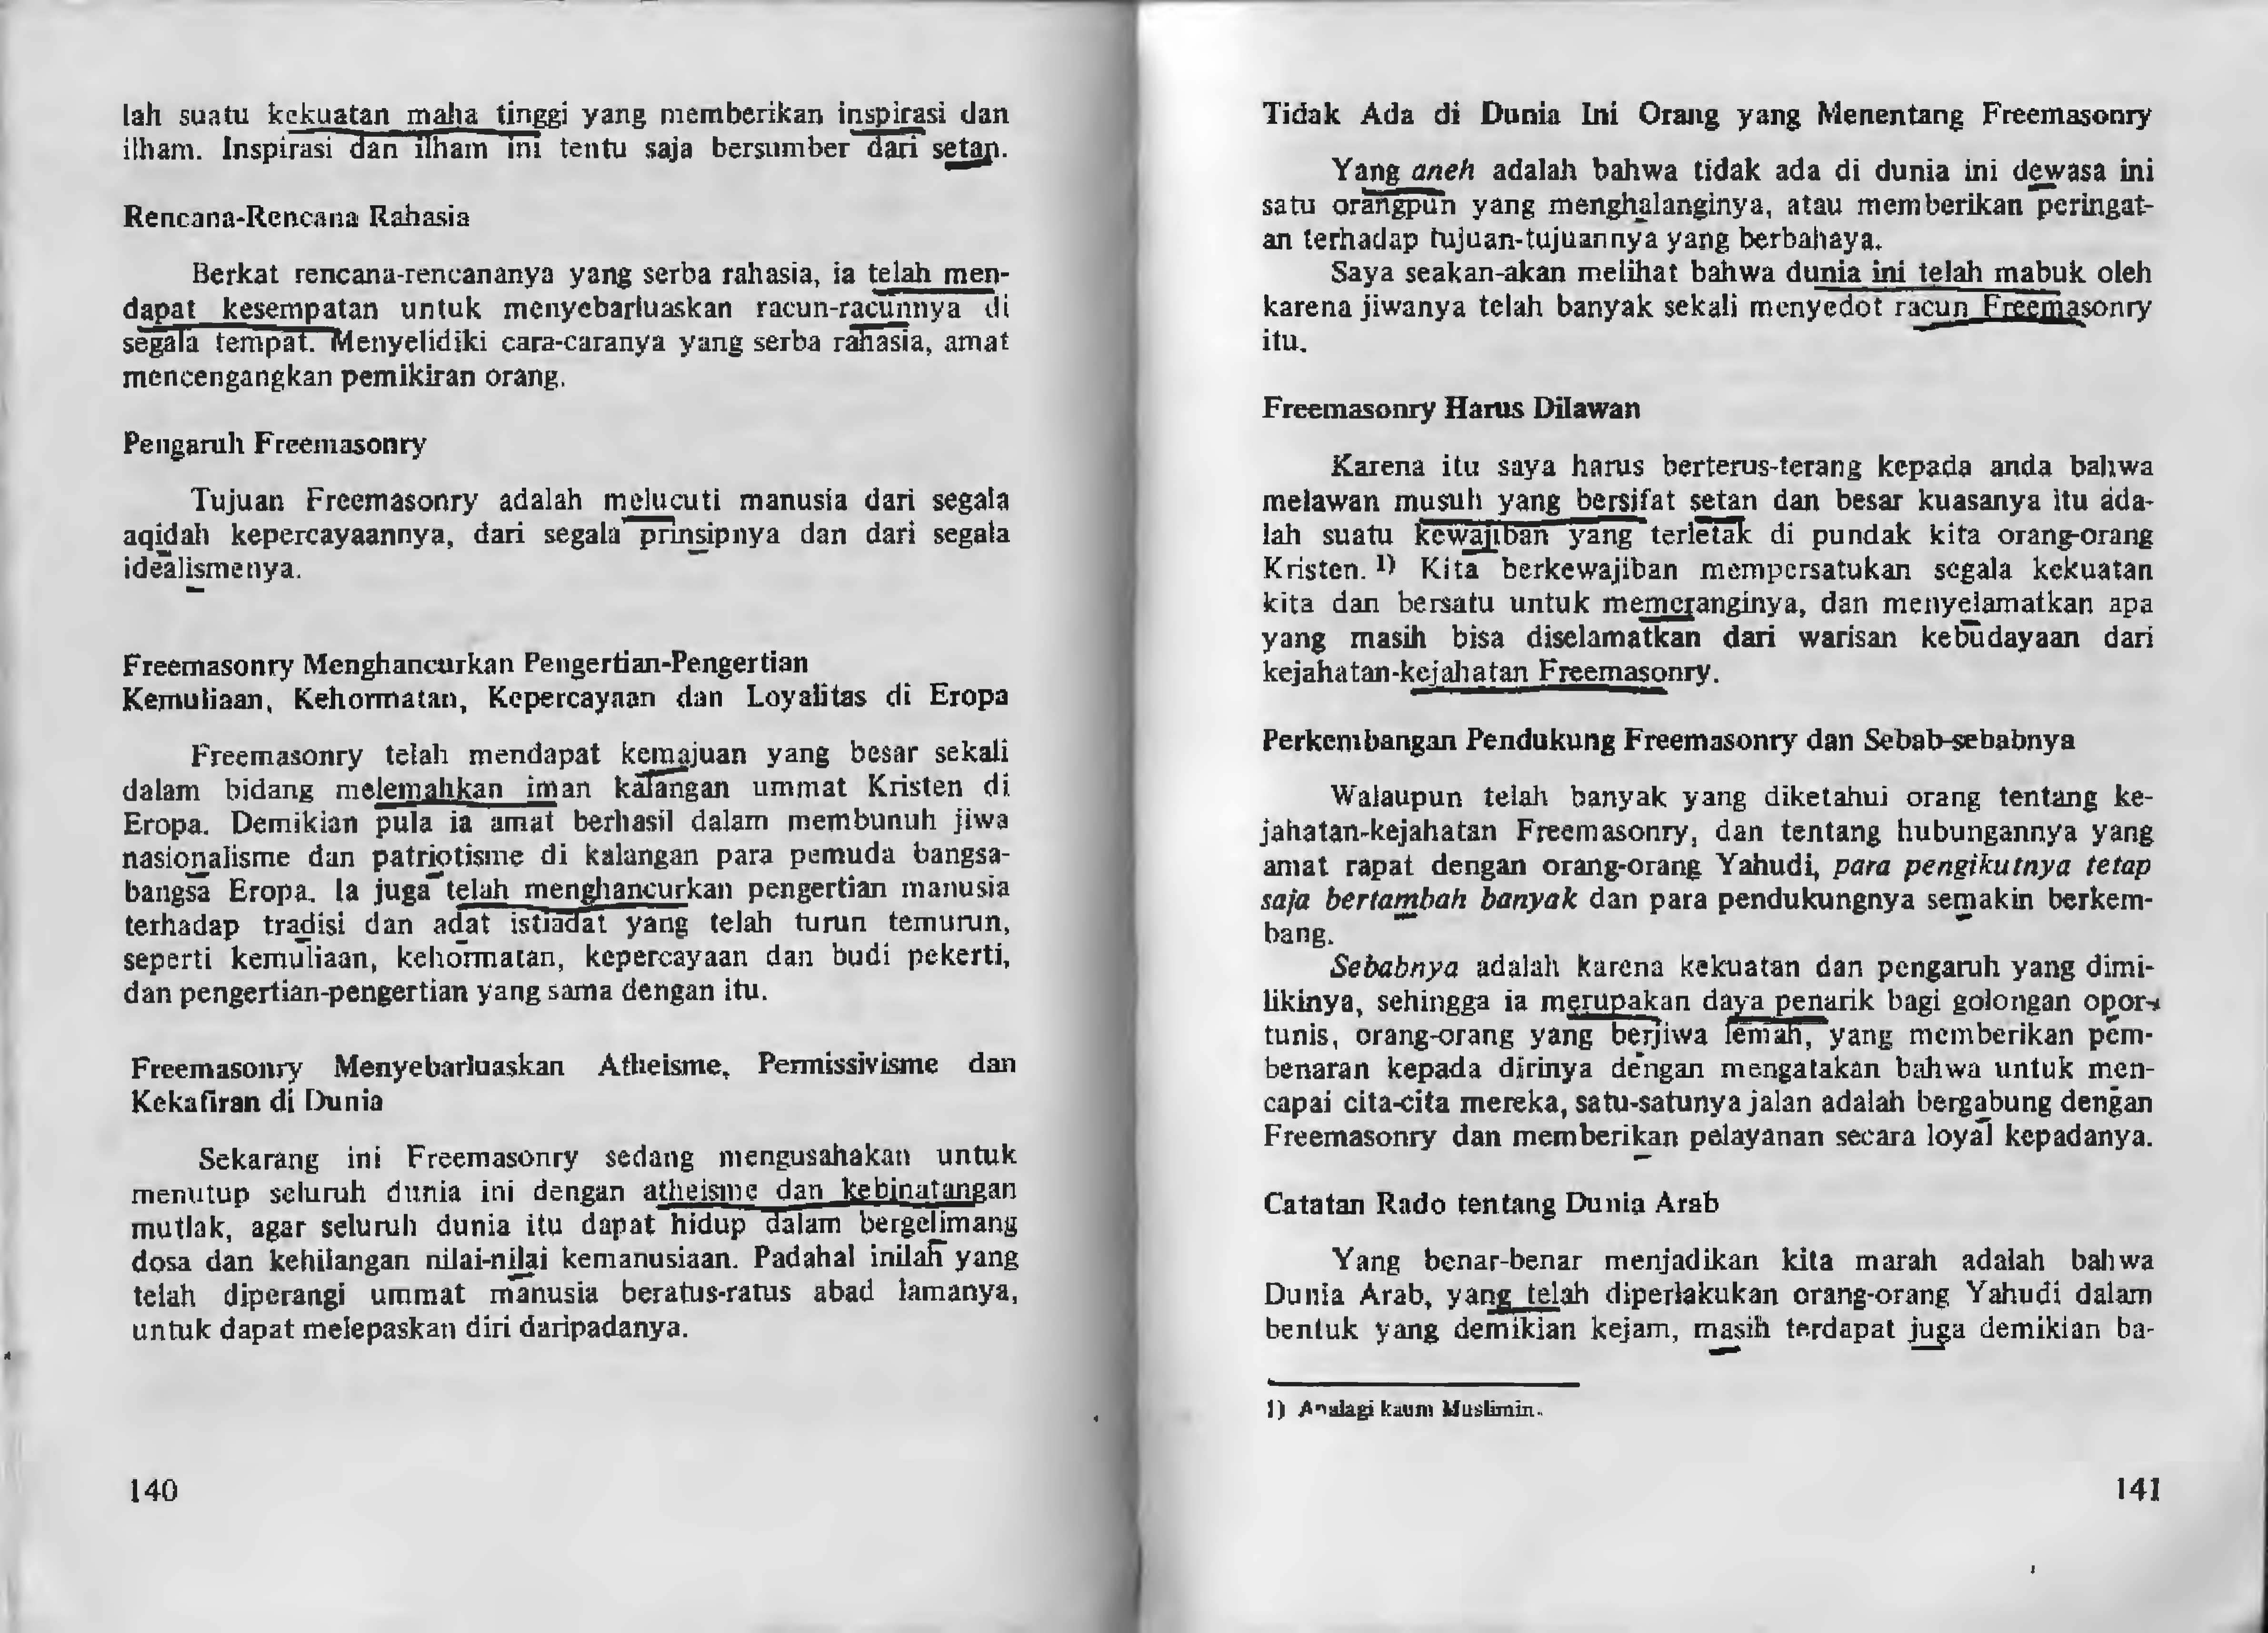 lah suatu kekuatan maha tinggi yang memberikan inspirasi dan
ilham. Inspirasi dan ilham ini tentu saja bersumber dari setan.
Rencana-Rencana Rahasia
Berkat rencana-rencananya yang serba rahasia, ia telah men-
dapat kesempatan untuk menyebarluaskan racun-racunnya di
segala tempat. Menyelidiki cara-caranya yang serba rahasia, amat
mencengangkan pemikiran orang.
Pengaruh Freemasonry
Tujuan Freemasonry adalah melucuti manusia dari segala
aqidah kepercayaannya, dari segala prinsipnya dan dari segala
idealismenya.
Freemasonry Menghancurkan Pengertian-Pengertian
Kemuliaan, Kehormatan, Kepercayaan dan Loyalitas di Eropa
Freemasonry telah mendapat kemajuan yang besar sekali
dalam bidang melemahkan iman kalangan ummat Kristen di
Eropa. Demikian pula ia amat berhasil dalam membunuh jiwa
nasionalisme dan patriotisme di kalangan para pemuda bangsa-
bangsa Eropa. Ia juga telah menghancurkan pengertian manusia
terhadap tradisi dan adat istiadat yang telah turun temurun,
seperti kemuliaan, kehormatan, kepercayaan dan budi pekerti,
dan pengertian-pengertian yang sama dengan itu.
Freemasonry Menyebarluaskan Atheisme, Permissivisme dan
Kekafiran di Dunia
Sekarang ini Freemasonry sedang mengusahakan untuk
menutup seluruh dunia ini dengan atheisme dan kebinatangan
mutlak, agar seluruh dunia itu dapat hidup dalam bergelimang
dosa dan kehilangan nilai-nilai kemanusiaan. Padahal inilah yang
telah diperangi ummat manusia beratus-ratus abad lamanya,
untuk dapat melepaskan diri daripadanya.
140
Tidak Ada di Dunia Ini Orang yang Menentang Freemasonry
Yang aneh adalah bahwa tidak ada di dunia ini dewasa ini
satu orangpun yang menghalanginya, atau memberikan peringat-
an terhadap tujuan-tujuannya yang berbahaya.
Saya seakan-akan melihat bahwa dunia ini telah mabuk oleh
karena jiwanya telah banyak sekali menyedot racun Freemasonry
itu.
Freemasonry Harus Dilawan
Karena itu saya harus berterus-terang kepada anda bahwa
melawan musuh yang bersifat setan dan besar kuasanya itu ada-
lah suatu kewajiban yang terletak di pundak kita orang-orang
Kristen. 1) Kita berkewajiban mempersatukan segala kekuatan
kita dan bersatu untuk memeranginya, dan menyelamatkan apa
yang masih bisa diselamatkan dari warisan kebudayaan dari
kejahatan-kejahatan Freemasonry.
Perkembangan Pendukung Freemasonry dan Sebab-sebabnya
Walaupun telah banyak yang diketahui orang tentang ke-
jahatan-kejahatan Freemasonry, dan tentang hubungannya yang
amat rapat dengan orang-orang Yahudi, para pengikutnya tetap
saja bertambah banyak dan para pendukungnya semakin berkem-
bang.
Sebabnya adalah karena kekuatan dan pengaruh yang dimi-
likinya, sehingga ia merupakan daya penarik bagi golongan opor-
tunis, orang-orang yang berjiwa lemah, yang memberikan pem-
benaran kepada dirinya dengan mengatakan bahwa untuk men-
capai cita-cita mereka, satu-satunya jalan adalah bergabung dengan
Freemasonry dan memberikan pelayanan secara loyal kepadanya.
Catatan Rado tentang Dunia Arab
Yang benar-benar menjadikan kita marah adalah bahwa
Dunia Arab, yang telah diperlakukan orang-orang Yahudi dalam
bentuk yang demikian kejam, masih terdapat juga demikian ba-
1) Analagi kaum Muslimin.
141